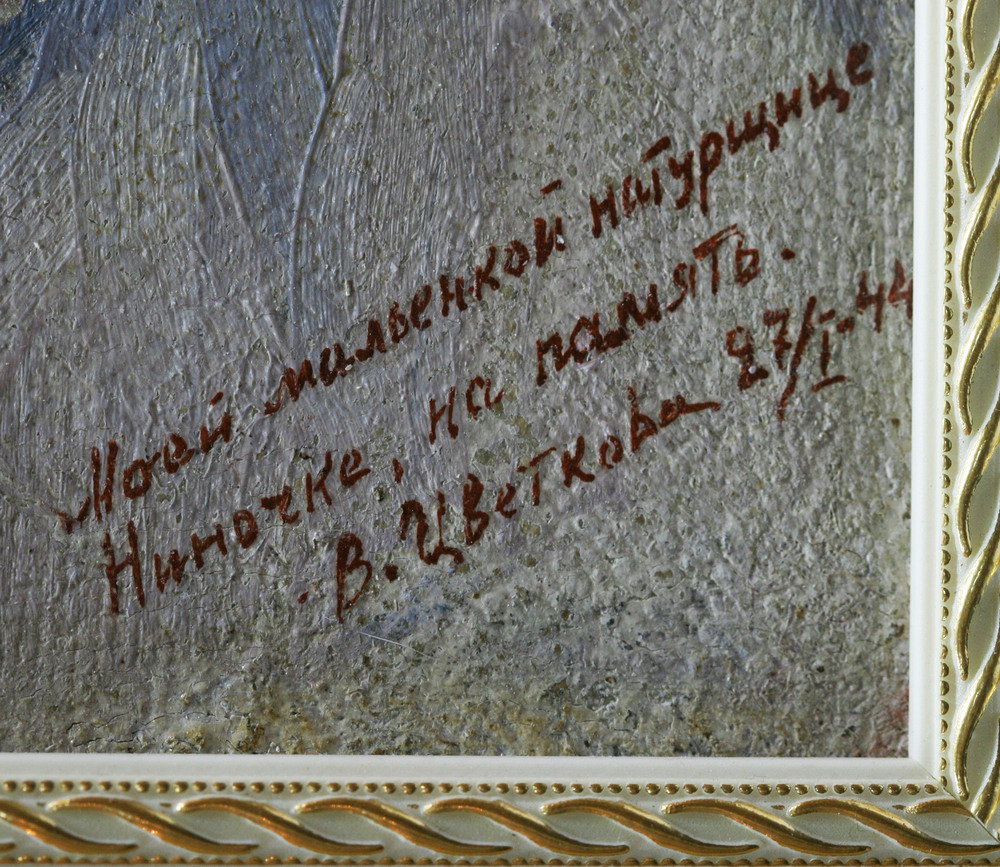 Моей маленькой натурщице
Ниночке, на память.
В. Цветкова 27/I-44